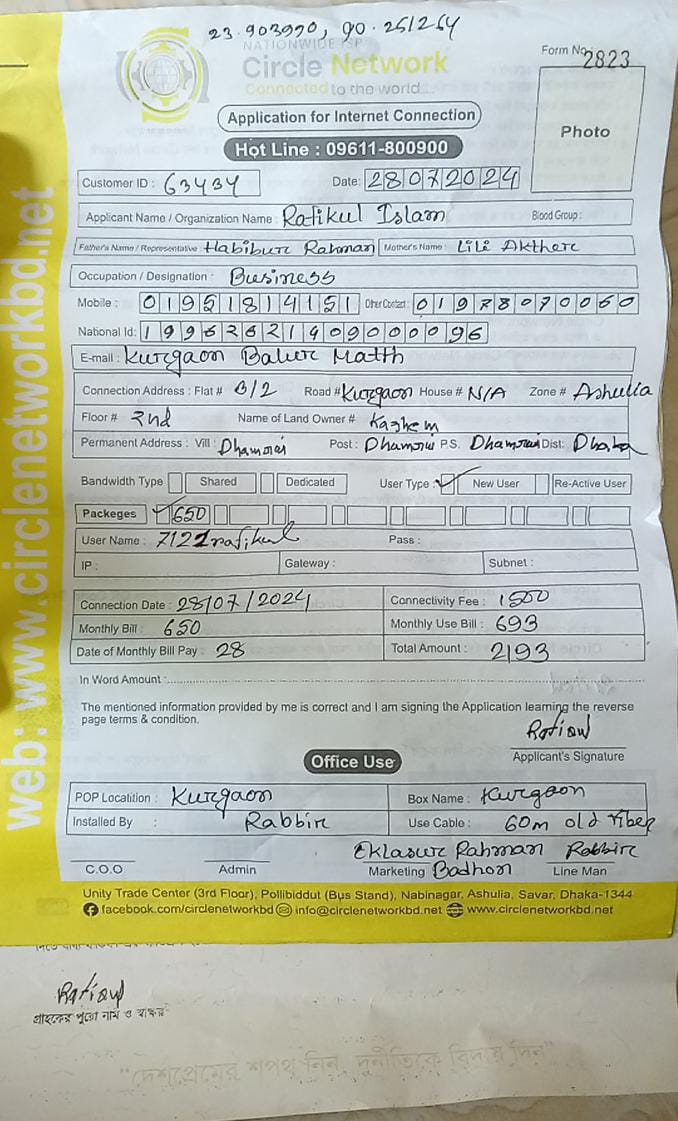 23.903990, 90.251264
NATIONWIDE ISP
Form No. 2823
Circle Network
Connected to the world...
Application for Internet Connection
Photo
Hot Line : 09611-800900
Customer ID : 63434 Date: 28072024
Applicant Name / Organization Name : Rafikul Islam Blood Group :
Father's Name / Representative Habibur Rahman Mother's Name : Lili Akther
Occupation / Designation : Business
Mobile : 01951814151 Other Contact : 01978070060
National Id: 19962621409000096
E-mail : Kurgaon Balur Matth
Connection Address : Flat # B/2 Road # Kurgaon House # N/A Zone # Ashulia
Floor # 2nd Name of Land Owner # Kashem
Permanent Address : Vill : Dhamrai Post : Dhamrai P.S. Dhamrai Dist: Dhaka
Bandwidth Type Shared Dedicated User Type : New User Re-Active User
Packeges 650
User Name : 7121rafikul Pass :
IP : Gateway : Subnet :
Connection Date : 28/07/2024 Connectivity Fee : 1500
Monthly Bill : 650 Monthly Use Bill : 693
Date of Monthly Bill Pay : 28 Total Amount : 2193
In Word Amount :
The mentioned information provided by me is correct and I am signing the Application learning the reverse
page terms & condition.
Rafiqul
Applicant's Signature
Office Use
POP Locatition : Kurgaon Box Name : Kurgaon
Installed By : Rabbir Use Cable : 60m old fiber
Eklasur Rahman Rabbir
Badhon
C.O.O Admin Marketing Line Man
Unity Trade Center (3rd Floor), Pollibiddut (Bus Stand), Nabinagar, Ashulia, Savar, Dhaka-1344
facebook.com/circlenetworkbd info@circlenetworkbd.net www.circlenetworkbd.net
web: www.circlenetworkbd.net
Rafiqul
গ্রাহকের পুরো নাম ও স্বাক্ষর
"দেশপ্রেমের শপথ নিন, দুর্নীতিকে বিদায় দিন"